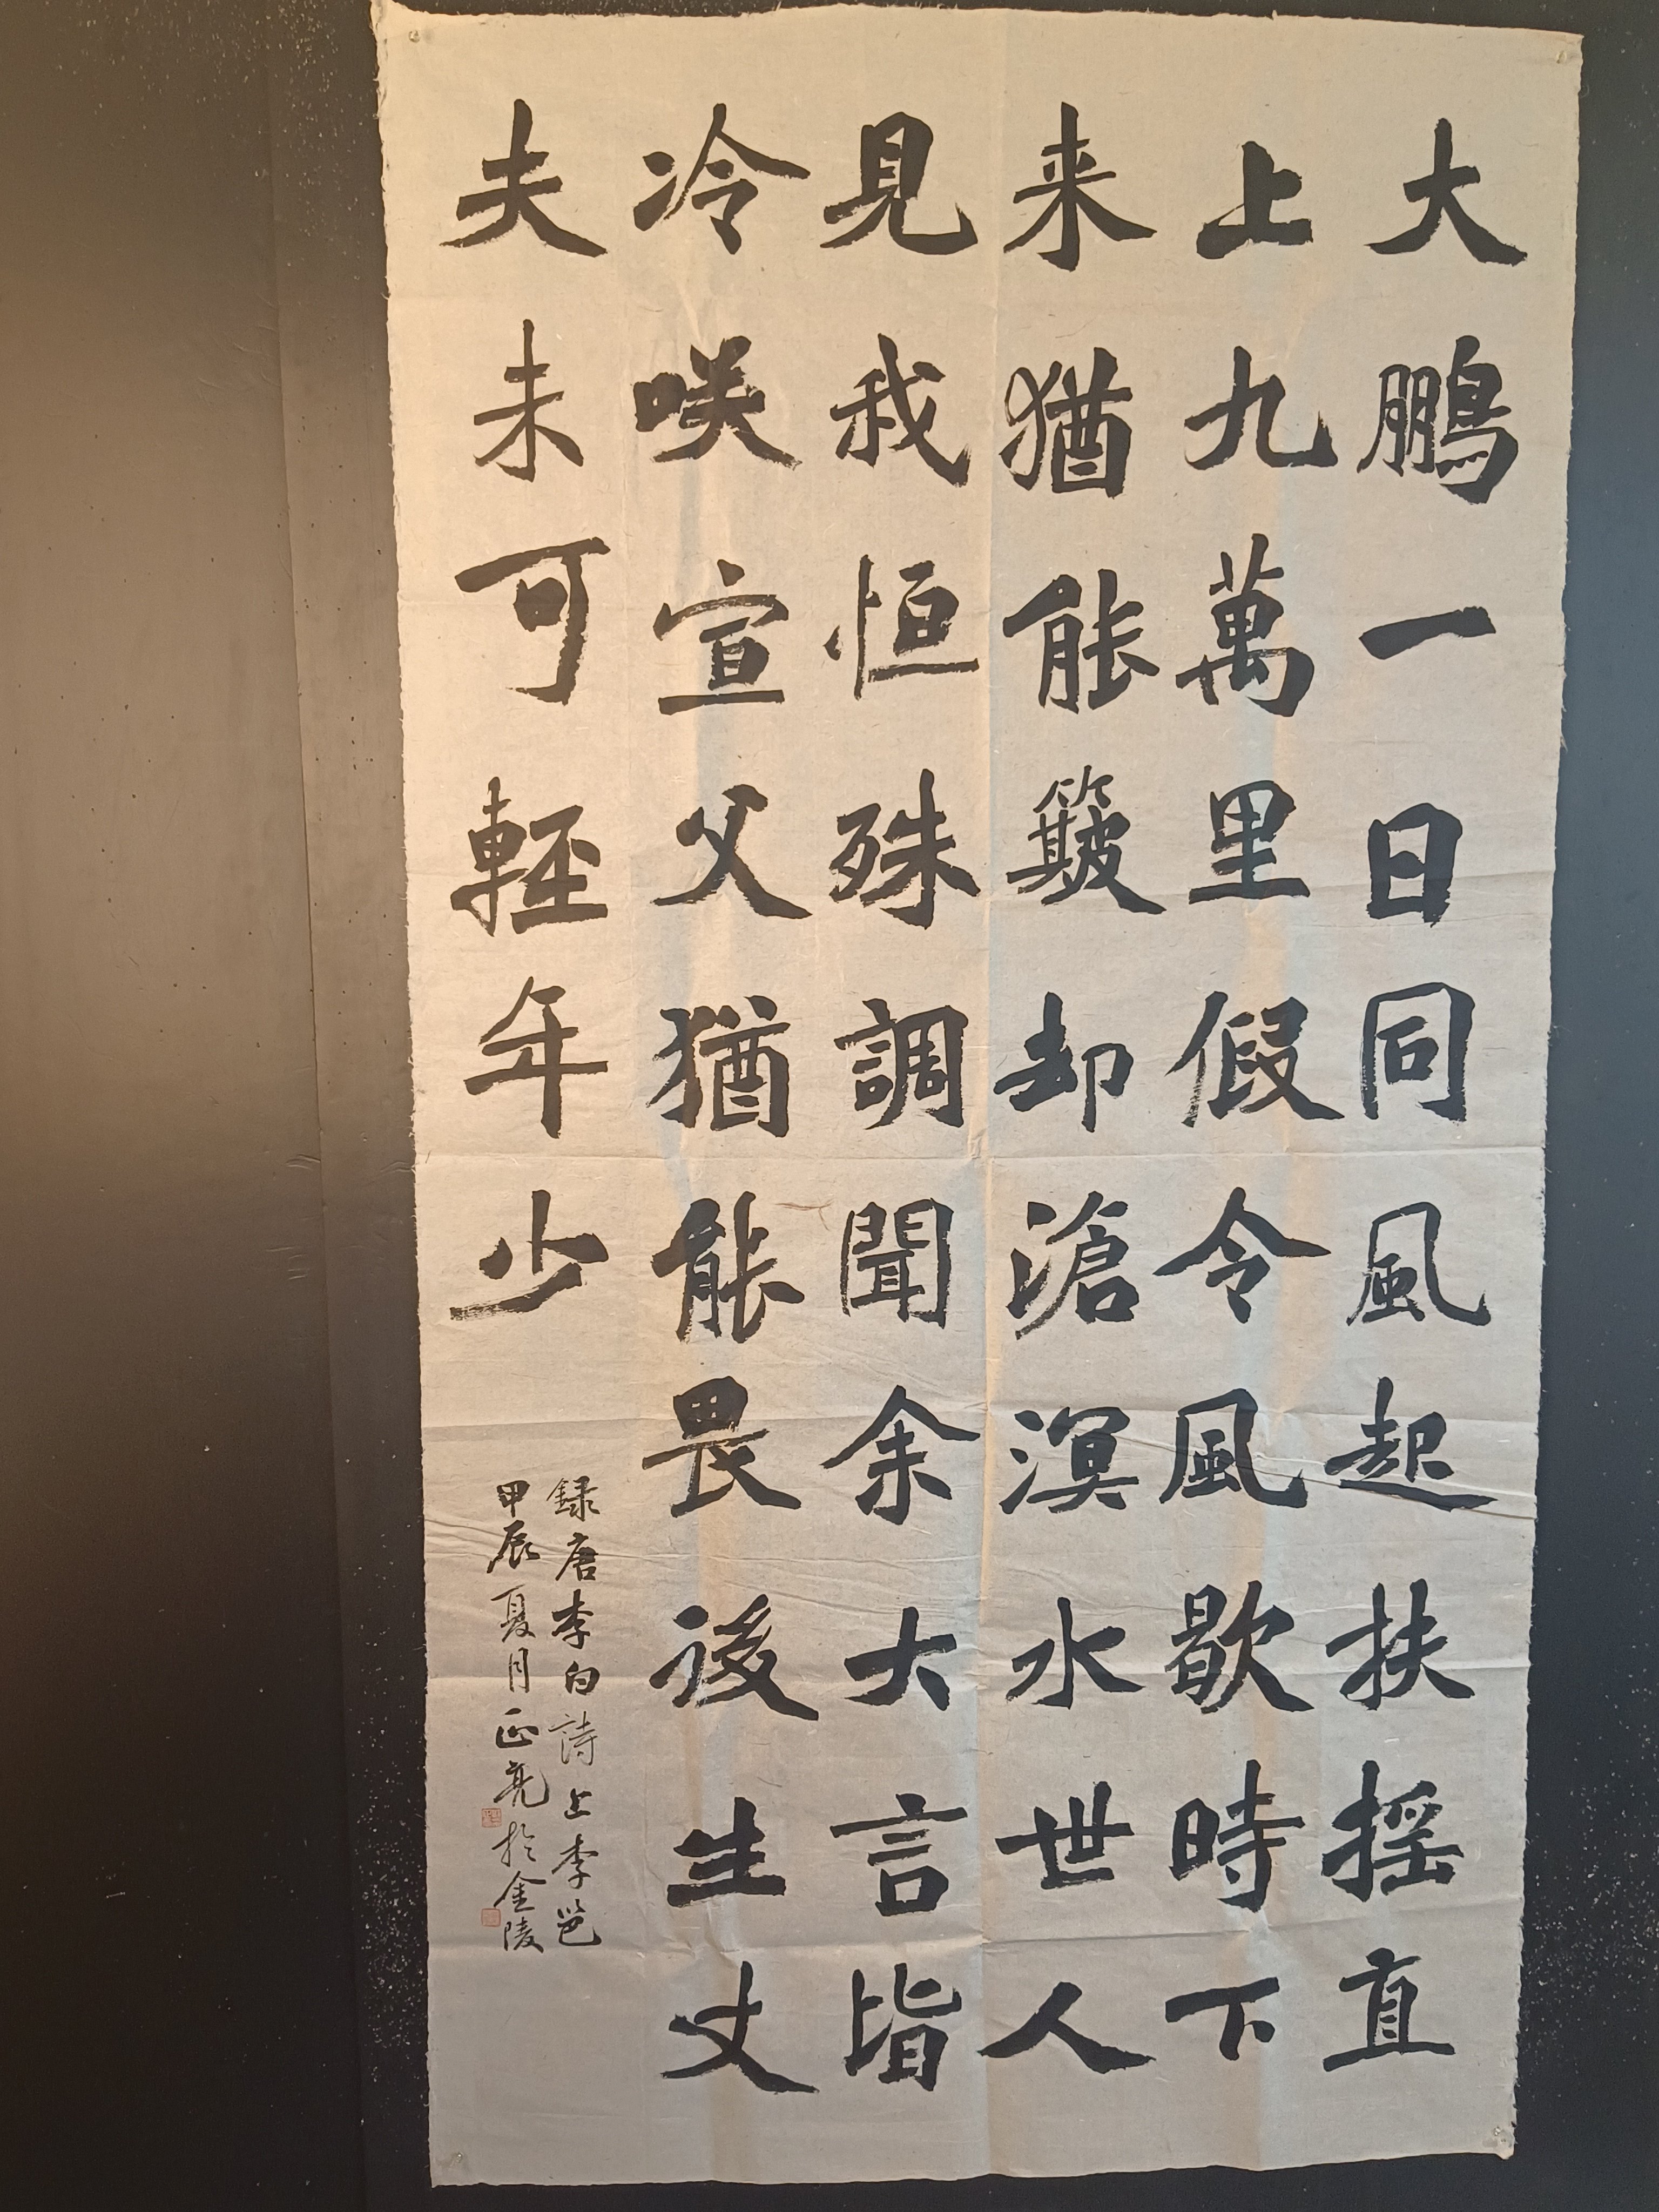 大鵬一日同風起扶摇直
上九萬里假令風歇時下
来猶能簸却滄溟水世人
見我恒殊調聞余大言皆
冷咲宣父猶能畏後生丈
夫未可輕年少
録唐李白詩上李邕
甲辰夏月正亮於金陵